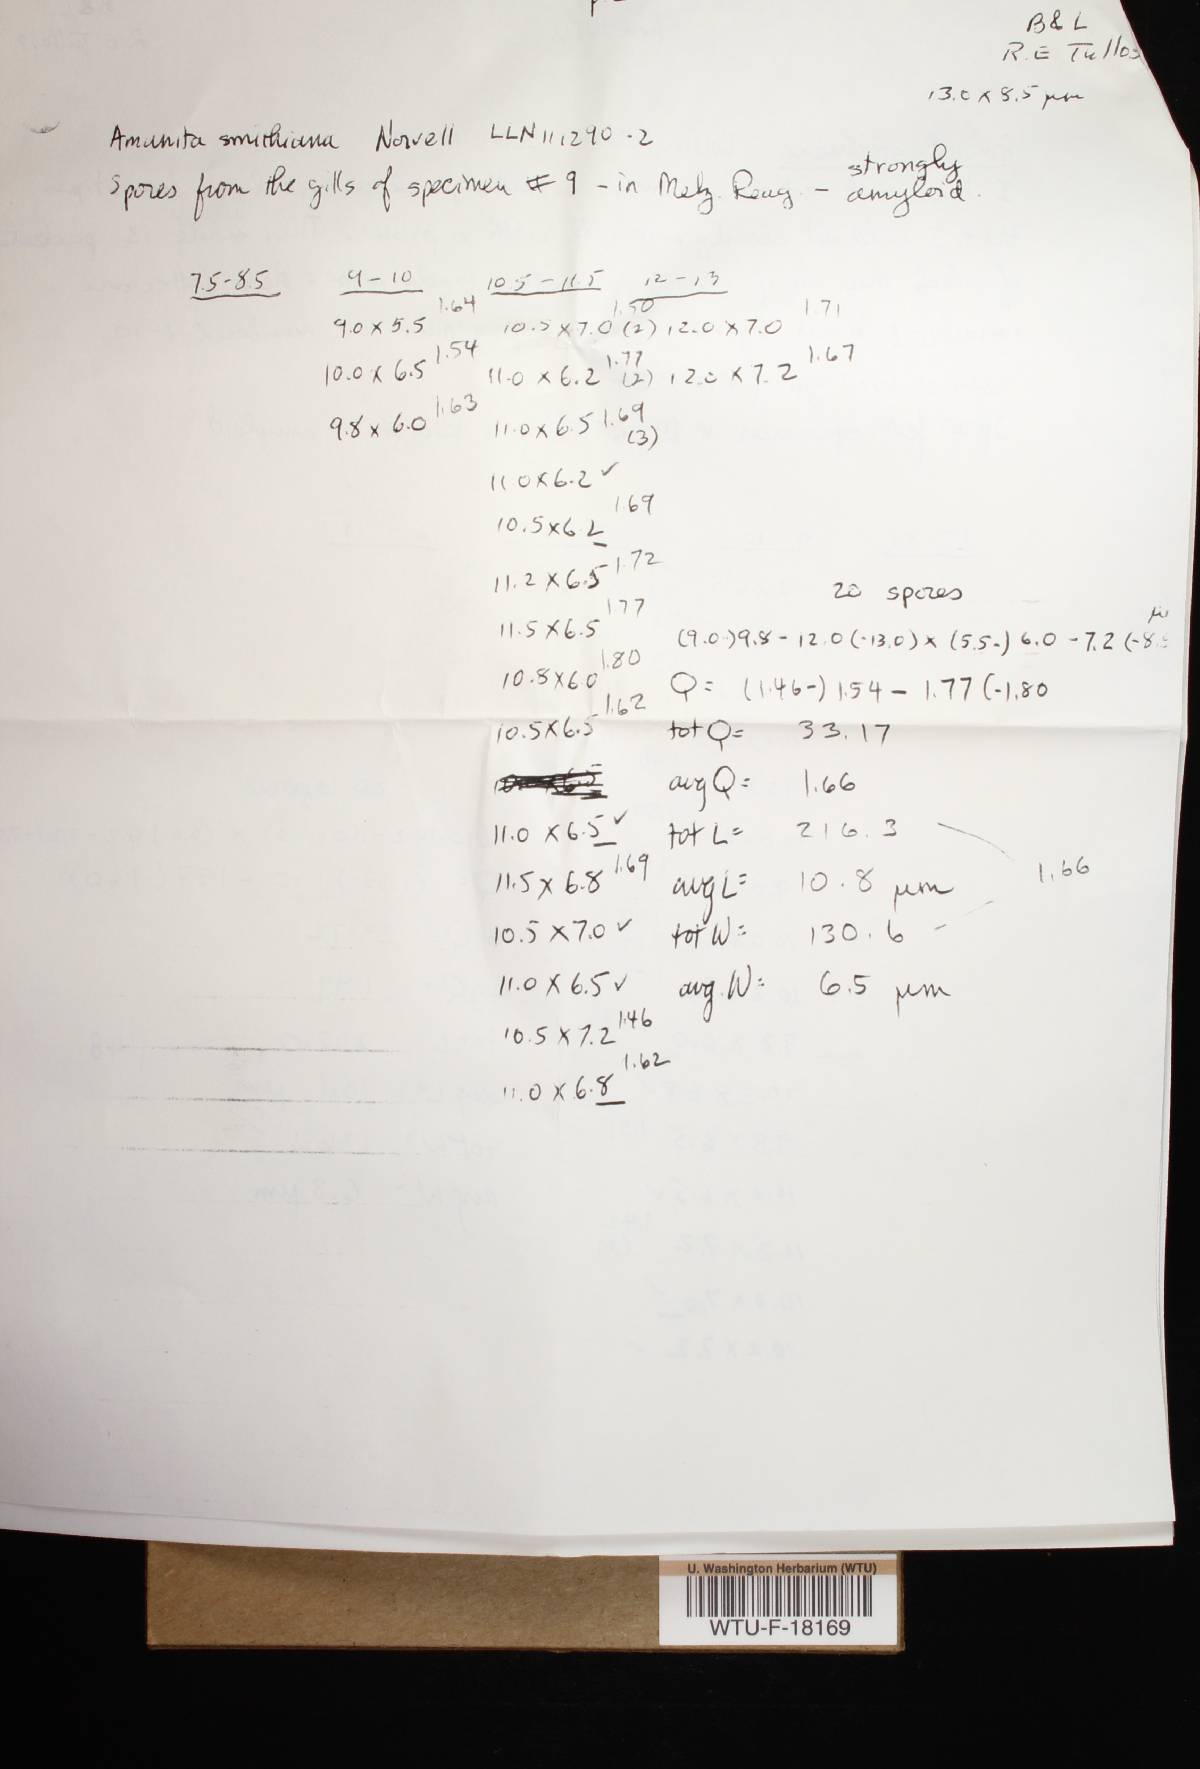 B & L
R.E Tullos
13.0 x 8.5 µm
Amanita smithiana Norvell LLN111290-2
Spores from the gills of specimen # 9 - in Melz. Reag. - strongly amyloid.
7.5-8.5 9-10 10.5-11.5 12-13
9.0 x 5.5 1.64 10.5 x 7.0 1.50 (2) 12.0 x 7.0 1.71
10.0 x 6.5 1.54 11.0 x 6.2 1.77 (2) 12.0 x 7.2 1.67
9.8 x 6.0 1.63 11.0 x 6.5 1.69 (3)
11.0 x 6.2 ✓
10.5 x 6.2 1.69
11.2 x 6.5 1.72
20 spores
11.5 x 6.5 1.77 (9.0-)9.8 - 12.0 (-13.0) x (5.5-) 6.0 - 7.2 (-8.5 µ
10.8 x 6.0 1.80 Q = (1.46-) 1.54 - 1.77 (-1.80
10.5 x 6.5 1.62 tot Q = 33.17
avg Q = 1.66
11.0 x 6.5 ✓ tot L = 216.3
11.5 x 6.8 1.69 avg L = 10.8 µm 1.66
10.5 x 7.0 ✓ tot W = 130.6
11.0 x 6.5 ✓ avg. W = 6.5 µm
10.5 x 7.2 1.46
11.0 x 6.8 1.62
U. Washington Herbarium (WTU)
WTU-F-18169